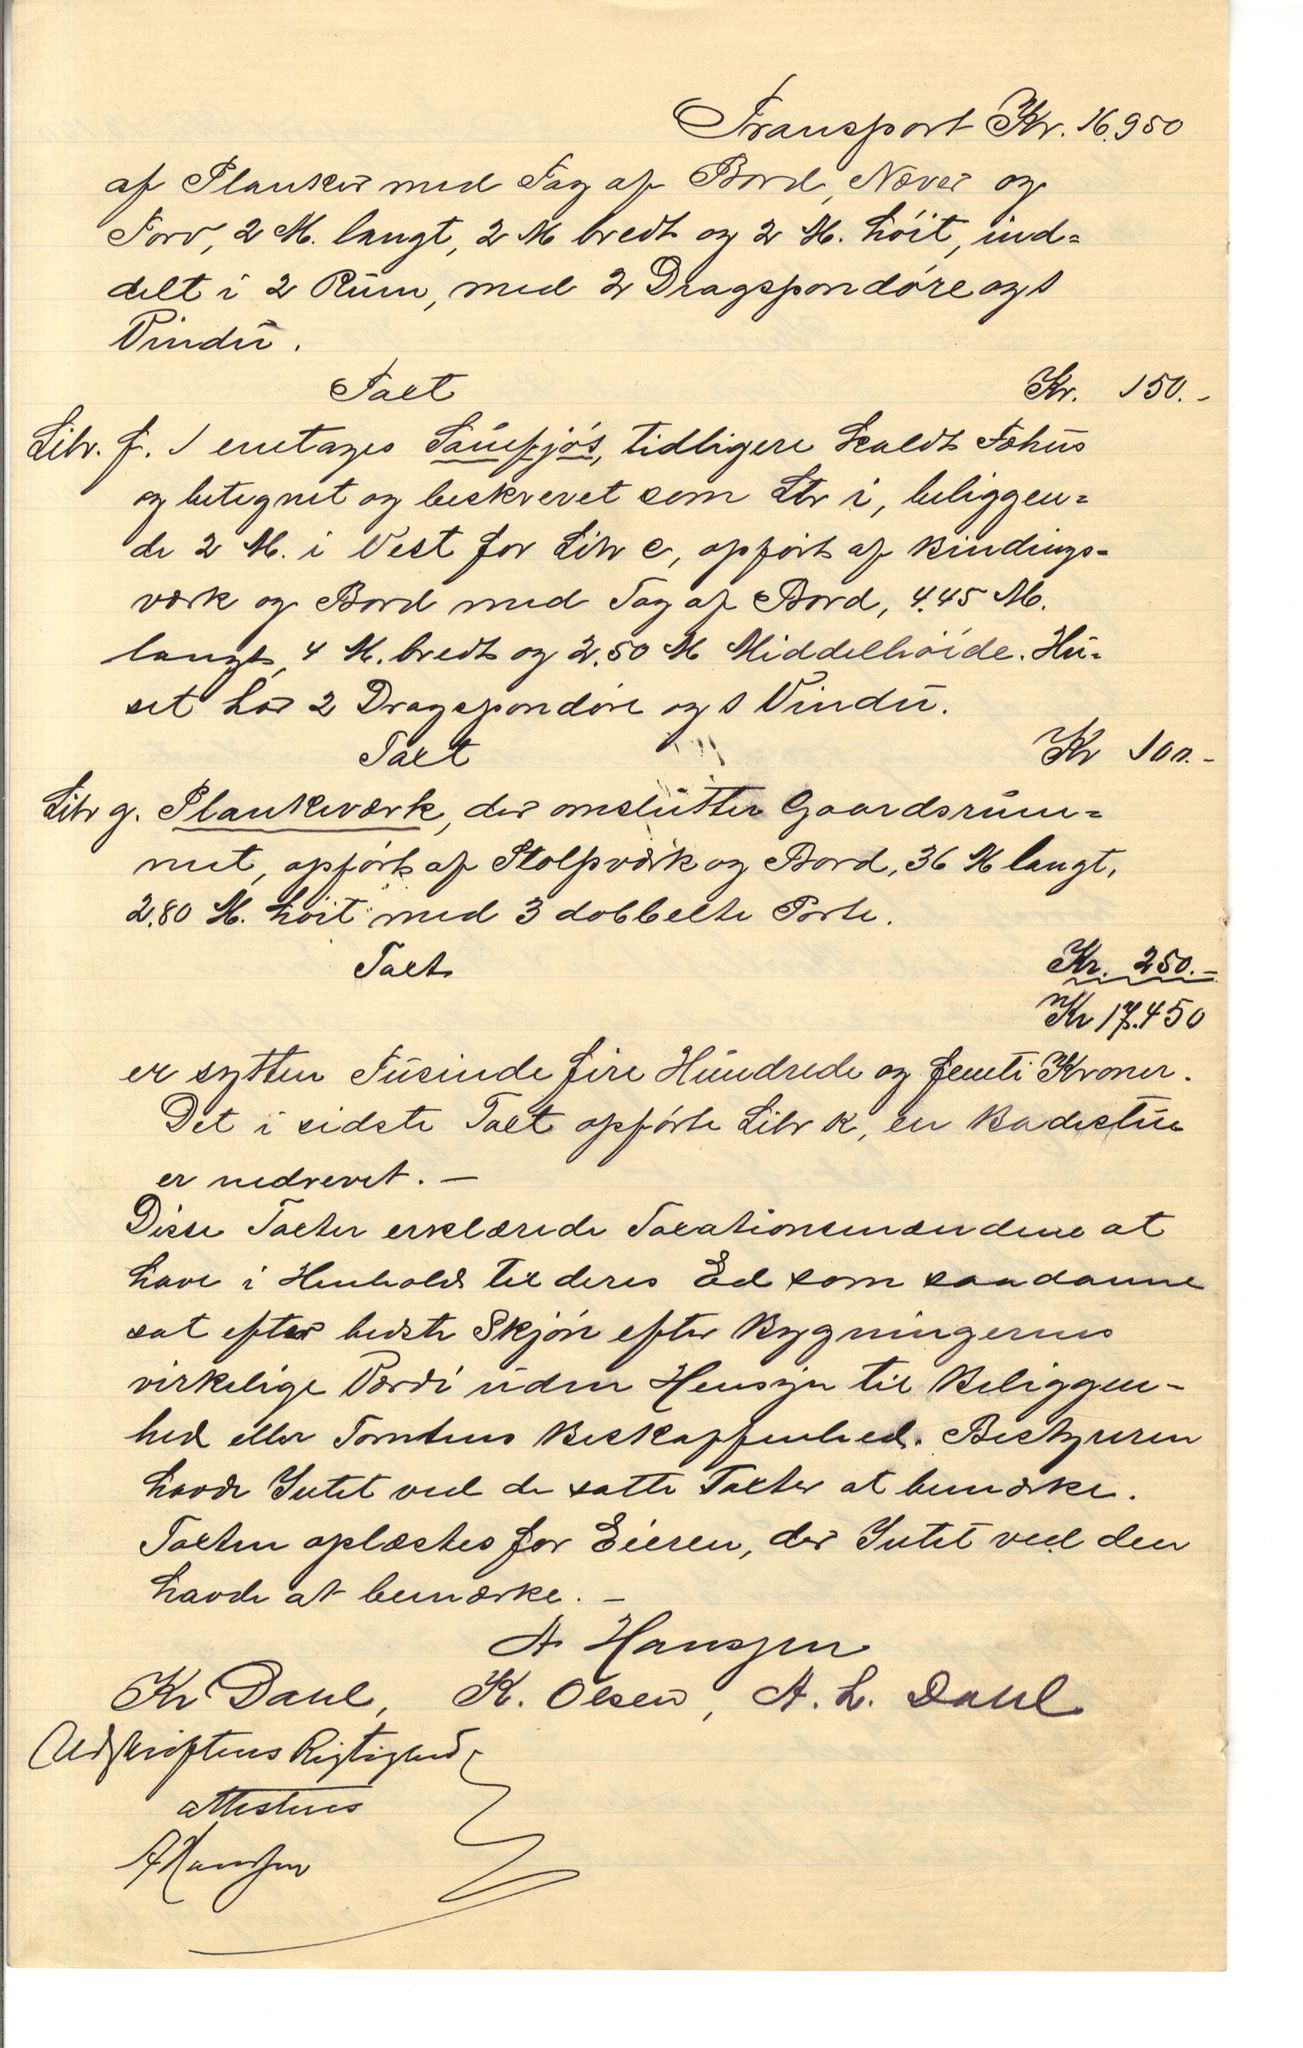 Transport Kr. 16.950
af Planker med Tag af Bord, Næver og
Torv, 2 M. langt, 2 M bredt og 2 M. høit, ind=
delt i 2 Rum, med 2 Dragspondøre og 1
Vindu.
Taxt Kr. 150.-
Litr. f. 1 enetages Sauefjøs, tidligere kaldt Fæhus
og betegnet og beskrevet som Litr i, beliggen=
de 2 M. i Vest for Litr e, opført af Bindings-
værk og Bord med Tag af Bord, 4.45 M.
langt, 4 M. bredt og 2.50 M Middelhøide. Hu=
set har 2 Dragspondøre og 1 Vindu.
Taxt Kr 100.-
Litr g. Plankeværk, der omslutter Gaardsrum=
met, opført af Stolpværk og Bord, 36 M langt,
2.80 M. høit med 3 dobbelte Porte.
Taxt Kr. 250.-
Kr 17.450
er sytten Tusinde fire Hundrede og femti Kroner.
Det i sidste Taxt opførte Litr k, en Badestue
er nedrevet. -
Disse Taxter erklærede Taxationsmændene at
have i Henhold til deres Ed som saadanne
sat efter bedste Skjøn efter Bygningernes
virkelige Værdi uden Hensyn til Beliggen-
hed eller Tomtens Beskaffenhed. Bestyreren
havde Intet ved de satte Taxter at bemærke.
Taxten oplæstes for Eieren, der Intet ved den
havde at bemærke. -
A Hanssen
Kr Dahl, K. Olsen, A. L. Dahl
Udskriftens Rigtighed
attesteres
AHanssen